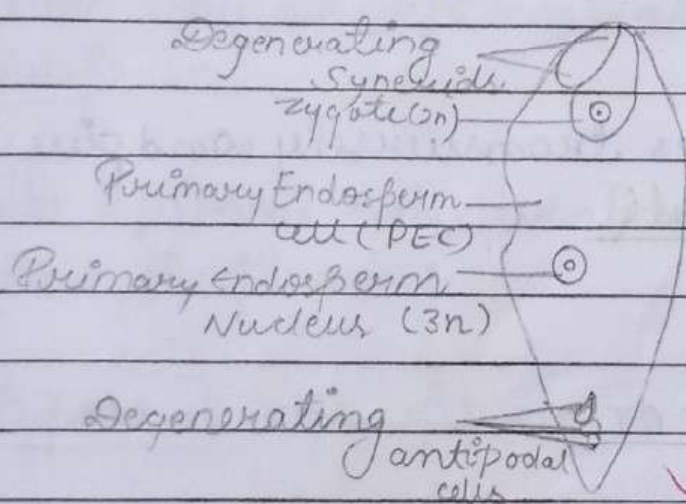 Degenerating
Synergids
Zygote (2n)
Primary Endosperm
cell (PEC)
Primary Endosperm
Nucleus (3n)
Degenerating
antipodal
cells